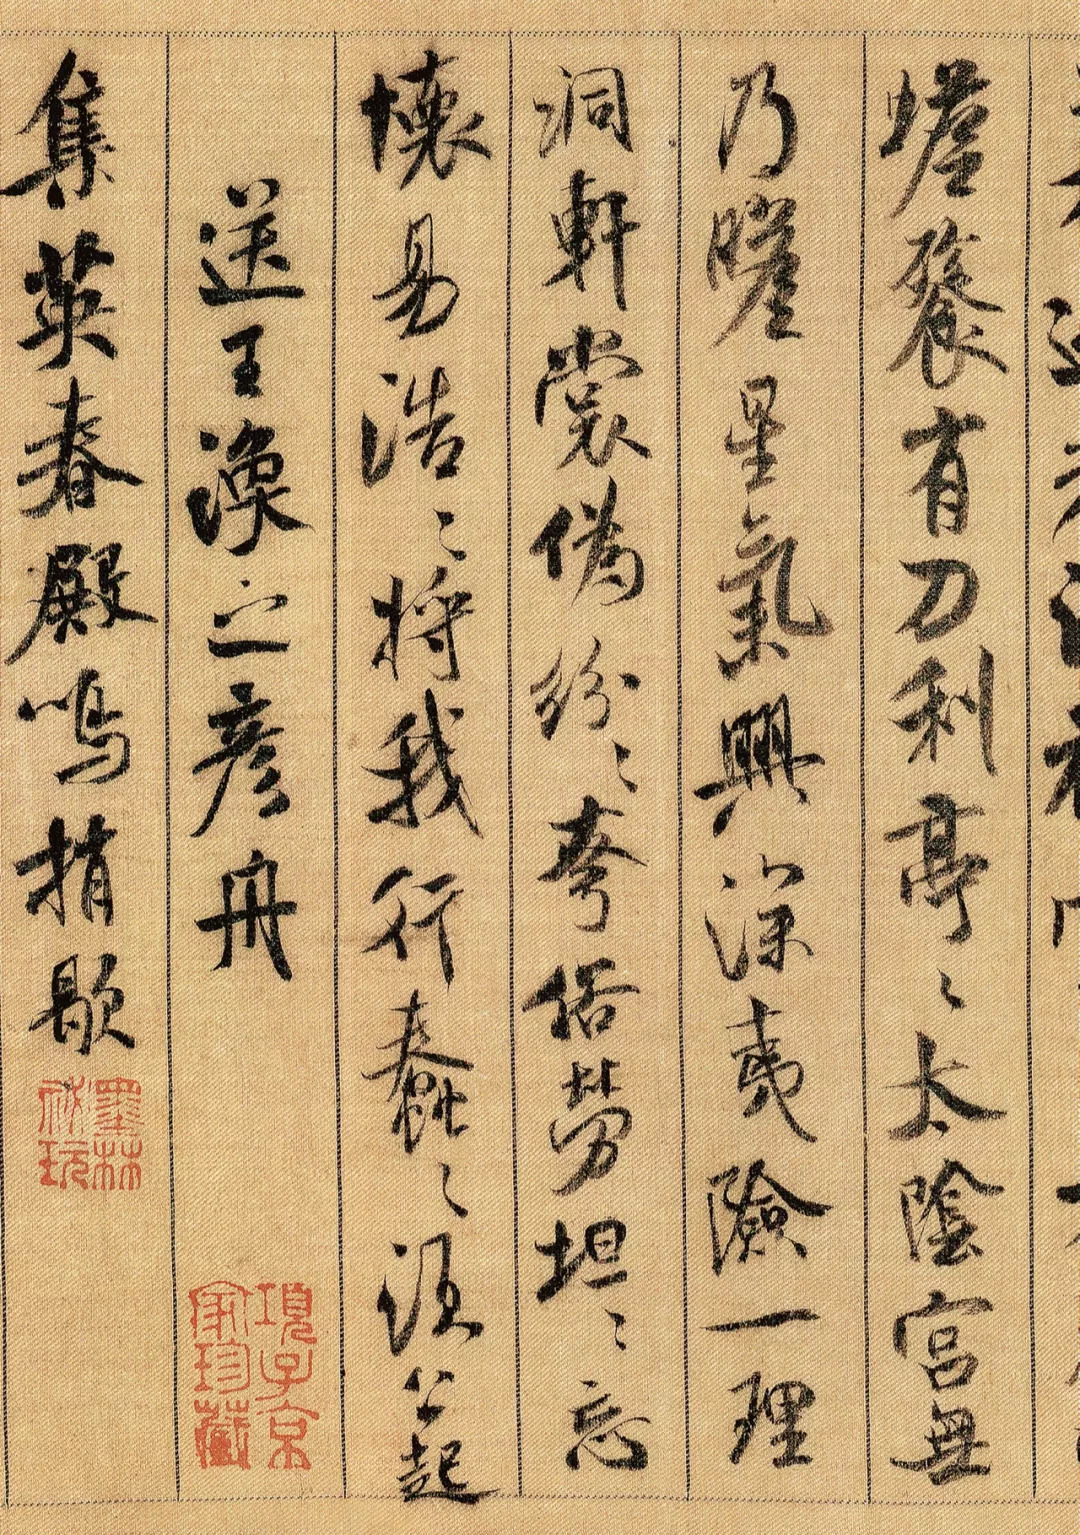 蟾餮有刀利亭〻太陰宮無
乃瞻星氣興深夷險一理
洞軒裳偽紛〻夸俗勞坦〻忘
懷易浩〻將我行蠢〻須公起
送王渙之彥舟
項子京
家珍藏
集英春殿鳴捎歇
墨林
祕玩